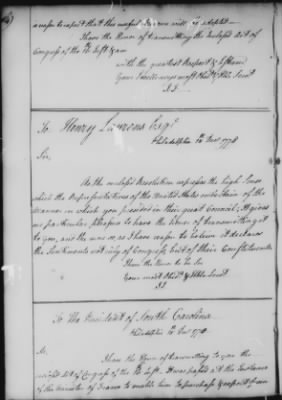 reason to expect that this useful Scheme will be adopted—
I have the Honor of transmitting the enclosed Act of
Congress of the 8th Inst & am
with the greatest Respect & Esteem
Your Excellencys most Obedt & Hble Servt
J.J.
To Henry Laurens Esqr
Philadelphia 12 Decr 1778
Sir,
As the enclosed Resolution expresses the high Sense
which the Representatives of the United States entertain of the
Manner in which you presided in their great Council, It gives
me particular pleasure to have the Honor of transmitting it
to you, and the more so, as I have reason to believe it declares
the Sentiments not only of Congress, but of their Constituents
I have the Honor to be Sir
Your most Obedt & Hble Servt
J.J.
To The President of South Carolina
Philadelphia 12 Decr 1778
Sir,
I have the Honor of transmitting to you the
enclosed Act of Congress of the Inst. It was passed at the Instance
of the Minister of France to enable him to purchase & export from